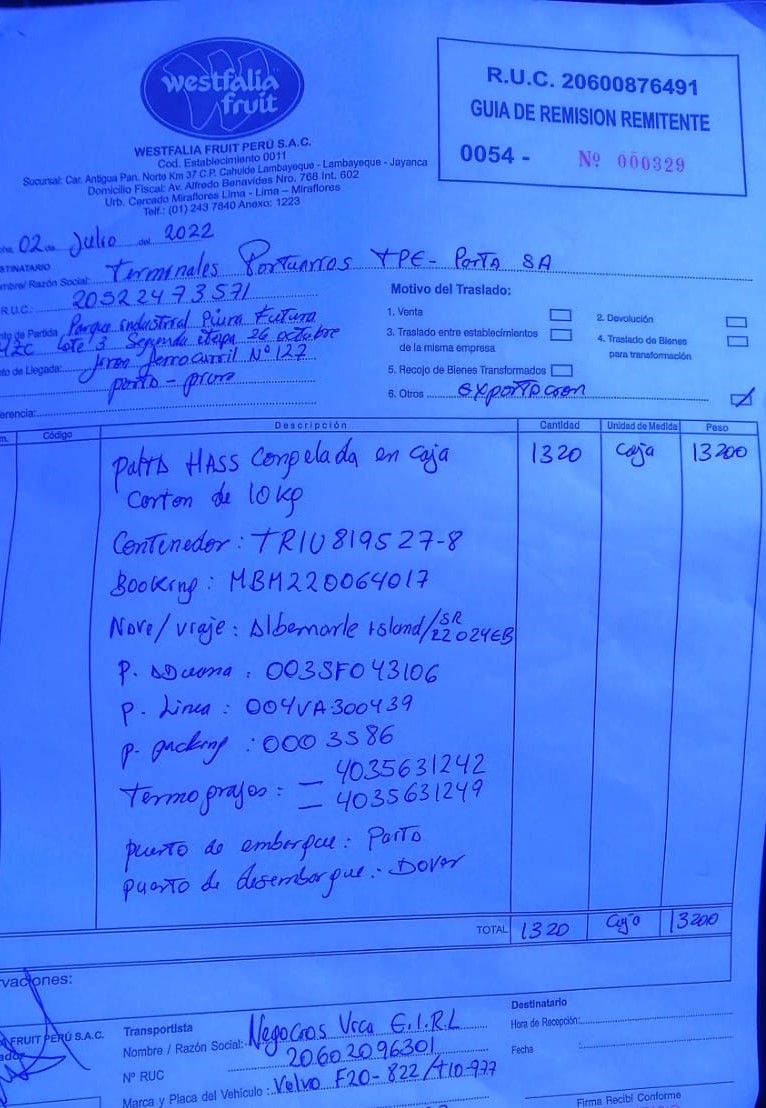 westfalia
fruit
WESTFALIA FRUIT PERÚ S.A.C.
Cod. Establecimiento 0011
Sucursal: Car. Antigua Pan. Norte Km 37 C.P. Cahuide Lambayeque - Lambayeque - Jayanca
Domicilio Fiscal: Av. Alfredo Benavides Nro. 768 Int. 602
Urb. Cercado Miraflores Lima - Lima - Miraflores
Telf.: (01) 243 7840 Anexo: 1223
R.U.C. 20600876491
GUIA DE REMISION REMITENTE
0054 - Nº 000329
02 de Julio del 2022
Razón Social: Terminales Portuarios TPE- Porta SA
R.U.C.: 20522473571
de Partida Parque industrial Piura Futura
Lote 3 Segunda etapa 26 octubre
de Llegada: Jiron ferrocarril Nº 127
Motivo del Traslado:
1. Venta
2. Devolución
3. Traslado entre establecimientos
de la misma empresa
4. Traslado de Bienes
para transformación
5. Recojo de Bienes Transformados
6. Otros exportacion
Código Descripción Cantidad Unidad de Medida Peso
Palta HASS Congelada en Caja 1320 Caja 13200
Carton de 10 kg
Contenedor: TRIU819527-8
Booking: MBM220064017
Nave/viaje: Albemarle Island/SR
22024EB
P. Aduana: 003SF043106
P. Linea: 004VA300439
p. packing: 0003586
Termografos: — 4035631242
— 4035631249
puerto de embarque: Paita
puerto de desembarque: Dover
TOTAL 1320 Caja 13200
FRUIT PERÚ S.A.C.
Transportista
Nombre / Razón Social: Negocios Vrca E.I.R.L
Nº RUC 20602096301
Marca y Placa del Vehículo: Volvo F20-822/T10-977
Destinatario
Hora de Recepción:
Fecha :
Firma Recibí Conforme